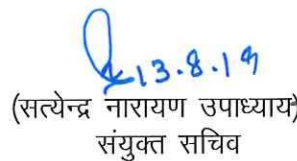 13.8.19
(सत्येन्द्र नारायण उपाध्याय)
संयुक्त सचिव